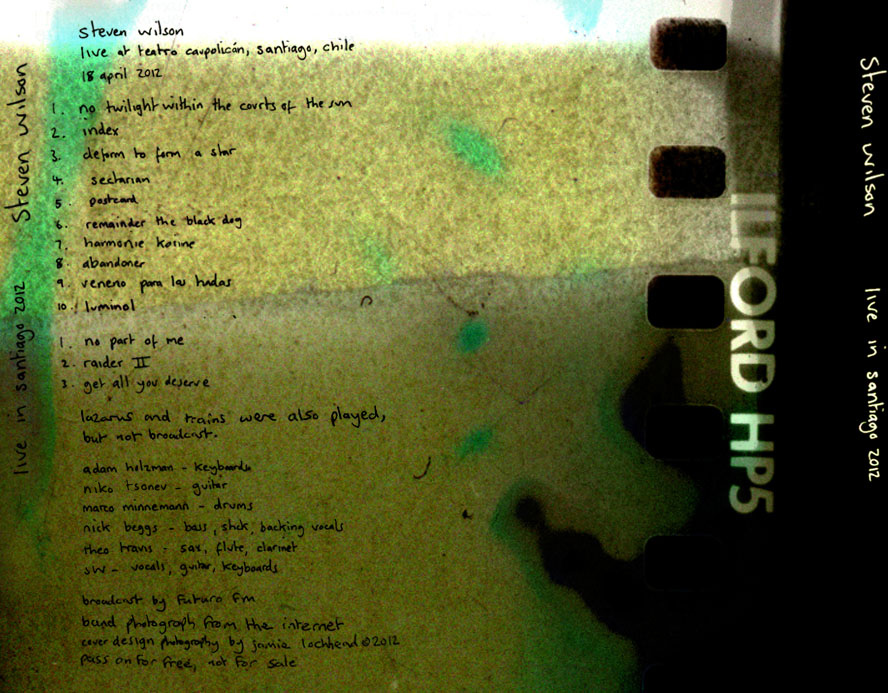 steven wilson
live at teatro caupolicán, santiago, chile
18 april 2012
1. no twilight within the courts of the sun
2. index
3. deform to form a star
4. sectarian
5. postcard
6. remainder the black dog
7. harmonie korine
8. abandoner
9. veneno para las hadas
10. luminol
1. no part of me
2. raider II
3. get all you deserve
lazarus and trains were also played,
but not broadcast.
adam holzman - keyboards
niko tsonev - guitar
marco minnemann - drums
nick beggs - bass, stick, backing vocals
theo travis - sax, flute, clarinet
sw - vocals, guitar, keyboards
broadcast by futuro fm
band photograph from the internet
cover design photography by jamie lochhead © 2012
pass on for free, not for sale
live in santiago 2012 steven wilson
ILFORD HP5
steven wilson live in santiago 2012